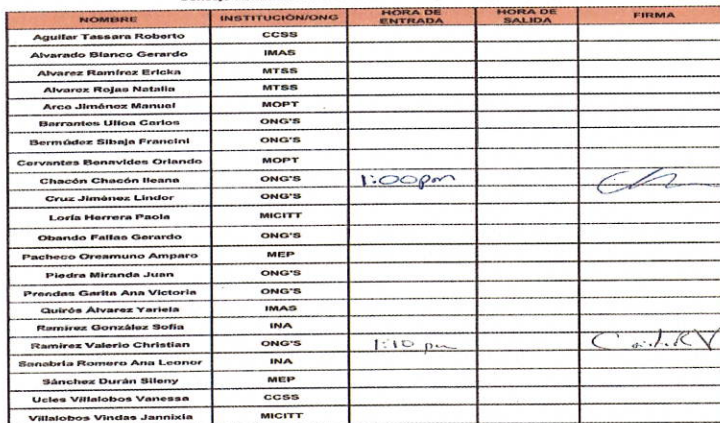 NOMBRE INSTITUCIÓN/ONG HORA DE ENTRADA HORA DE SALIDA FIRMA
Aguilar Tassara Roberto CCSS
Alvarado Blanco Gerardo IMAS
Alvarez Ramírez Ericka MTSS
Alvarez Rojas Natalia MTSS
Arce Jiménez Manuel MOPT
Barrantes Ulloa Carlos ONG'S
Bermúdez Sibaja Francini ONG'S
Cervantes Benavides Orlando MOPT
Chacón Chacón Ileana ONG'S 1:00pm
Cruz Jiménez Lindor ONG'S
Loría Herrera Paola MICITT
Obando Fallas Gerardo ONG'S
Pacheco Oreamuno Amparo MEP
Piedra Miranda Juan ONG'S
Prendas Garita Ana Victoria ONG'S
Quirós Álvarez Yariela IMAS
Ramírez González Sofía INA
Ramírez Valerio Christian ONG'S 1:10 pm
Sanabria Romero Ana Leonor INA
Sánchez Durán Sileny MEP
Ucles Villalobos Vanessa CCSS
Villalobos Vindas Jannixia MICITT